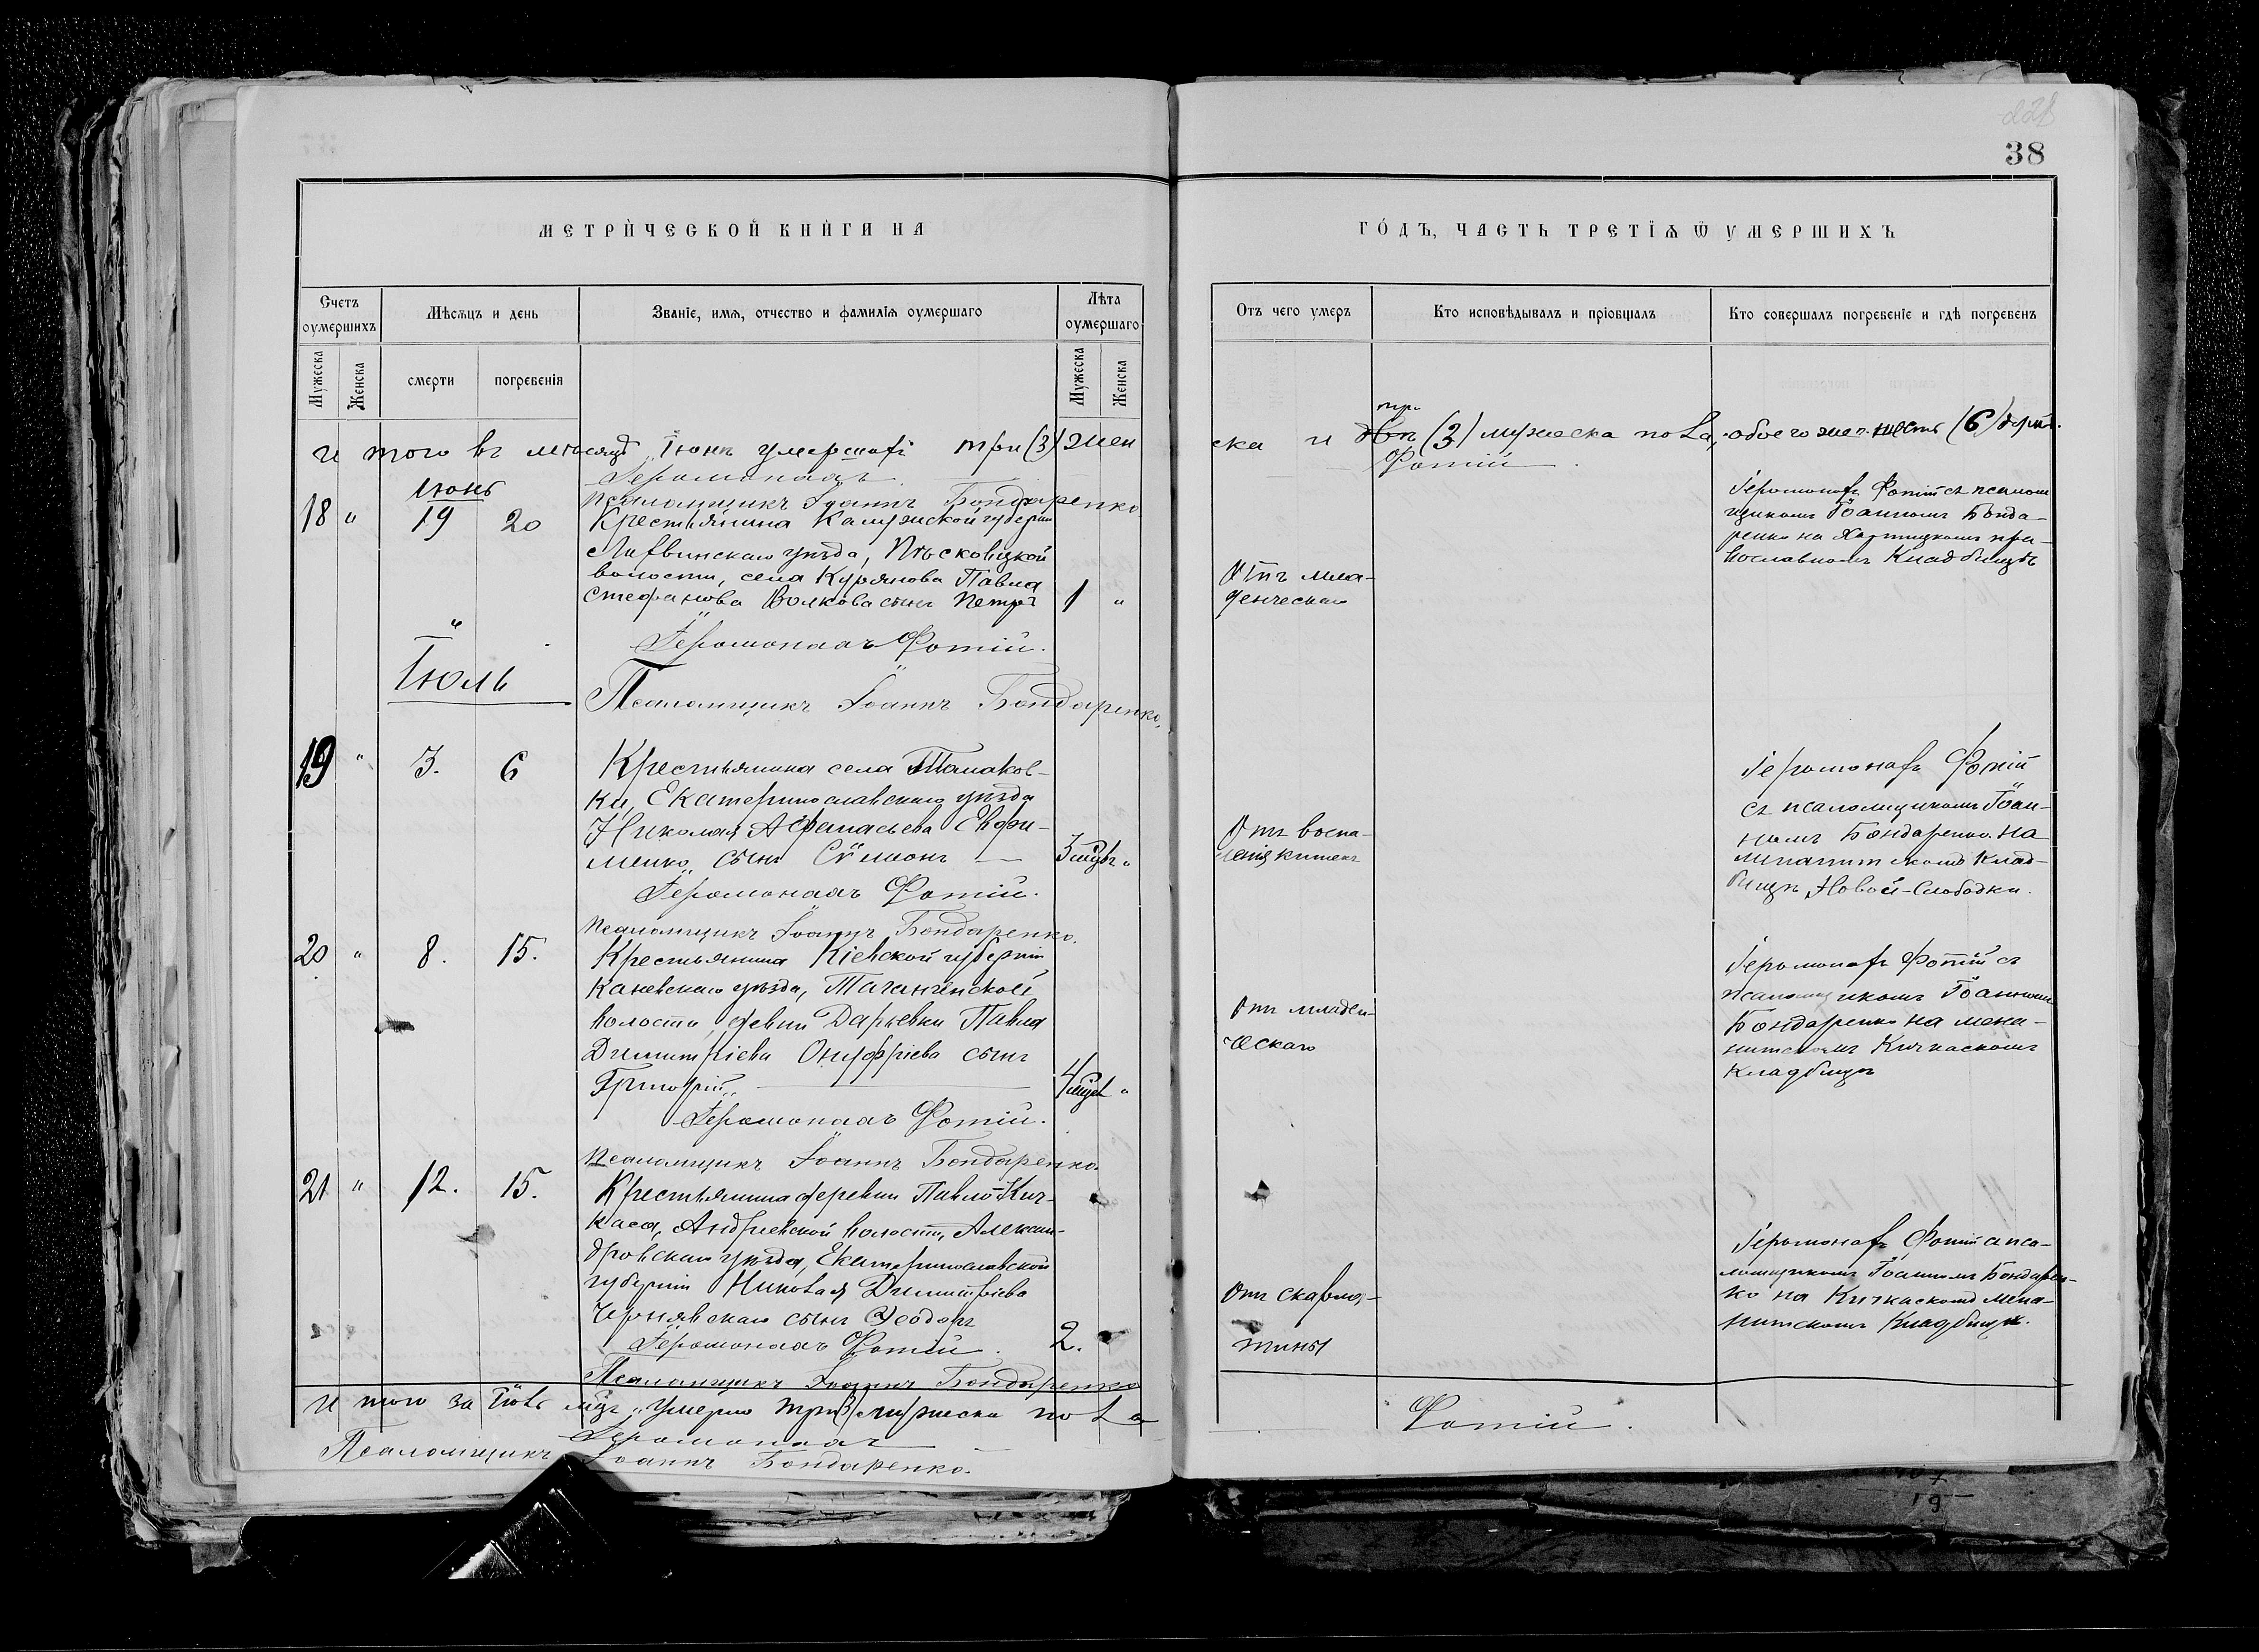 228
38
МЕТРИ́ЧЕСКОЙ КНИ́ГИ НА
ГО́ДЪ, ЧАСТЬ ТРЕТЇѦ Ѿ УМЕРШИХЪ
Счетъ оумершихъ
Мѣсѧцъ и день
Званїе, имѧ, отчество и фамилїѧ оумершаго
Лѣта оумершаго
Отъ чего умеръ
Кто исповѣдывалъ и прїобщалъ
Кто совершалъ погребенїе и гдѣ погребенъ
Мужеска
Женска
смерти
погребенїя
Мужеска
Женска
и того въ месяцѣ Іюнѣ умершихъ три (3) жен
ска и двѣ три (3) мужеска пола, обоего шесть (6)
Іеромонахъ
Фотій
Псаломщикъ Іоаннъ Бондаренко
Іюнь
18 " 19 20
Крестьянина Калужской губерніи
Лихвинскаго уѣзда, Пѣсковицкой
волости, села Курянова Павла
Стефанова Волкова сынъ Петръ
1 "
Отъ мла-
денческаго
Іеромонахъ Фотій съ псалом
щикомъ Іоанномъ Бонда-
ренко на Хортицкомъ пра-
вославномъ Кладбищѣ
Іеромонахъ Фотій.
Псаломщикъ Іоаннъ Бондаренко.
Іюль
19 " 3. 6
Крестьянина села Томаков-
ки, Екатеринославскаго уѣзда
Николая Афанасьева Евфи-
менко, сынъ Сѵмеонъ
3 мѣс. "
Отъ воспа-
ленія кишекъ
Іеромонахъ Фотій
съ псаломщикомъ Іоан-
номъ Бондаренко на
клад-
бищѣ Новой-Слободки.
Іеромонахъ Фотій.
Псаломщикъ Іоаннъ Бондаренко.
20 " 8. 15.
Крестьянина Кіевской губерніи
Каневскаго уѣзда, Таганченской
волости, девни Дарьевки Павла
Димитріева Онуфріева сынъ
Григорій
4 мѣс. "
Отъ младен-
ческаго
Іеромонахъ Фотій съ
псаломщикомъ Іоанномъ
Бондаренко на мено-
нитскомъ Кичкаскомъ
Кладбищѣ
Іеромонахъ Фотій.
Псаломщикъ Іоаннъ Бондаренко.
21 " 12. 15.
Крестьянина деревни Павло-Кич-
каса, Андреевской волости, Алексан-
дровскаго уѣзда, Екатеринославской
губерніи Николая Димитріева
Чернявскаго сынъ Ѳеодоръ
2.
Отъ скарла-
тины
Іеромонахъ Фотій съ пса-
ломщикомъ Іоанномъ Бондарен-
ко на Кичкаскомъ мено-
нитскомъ Кладбищѣ.
Іеромонахъ Фотій.
Псаломщикъ Іоаннъ Бондаренко
и того за Іюль мѣс. умерло три (3) мужеска пола
Іеромонахъ
Фотій.
Псаломщикъ Іоаннъ Бондаренко.